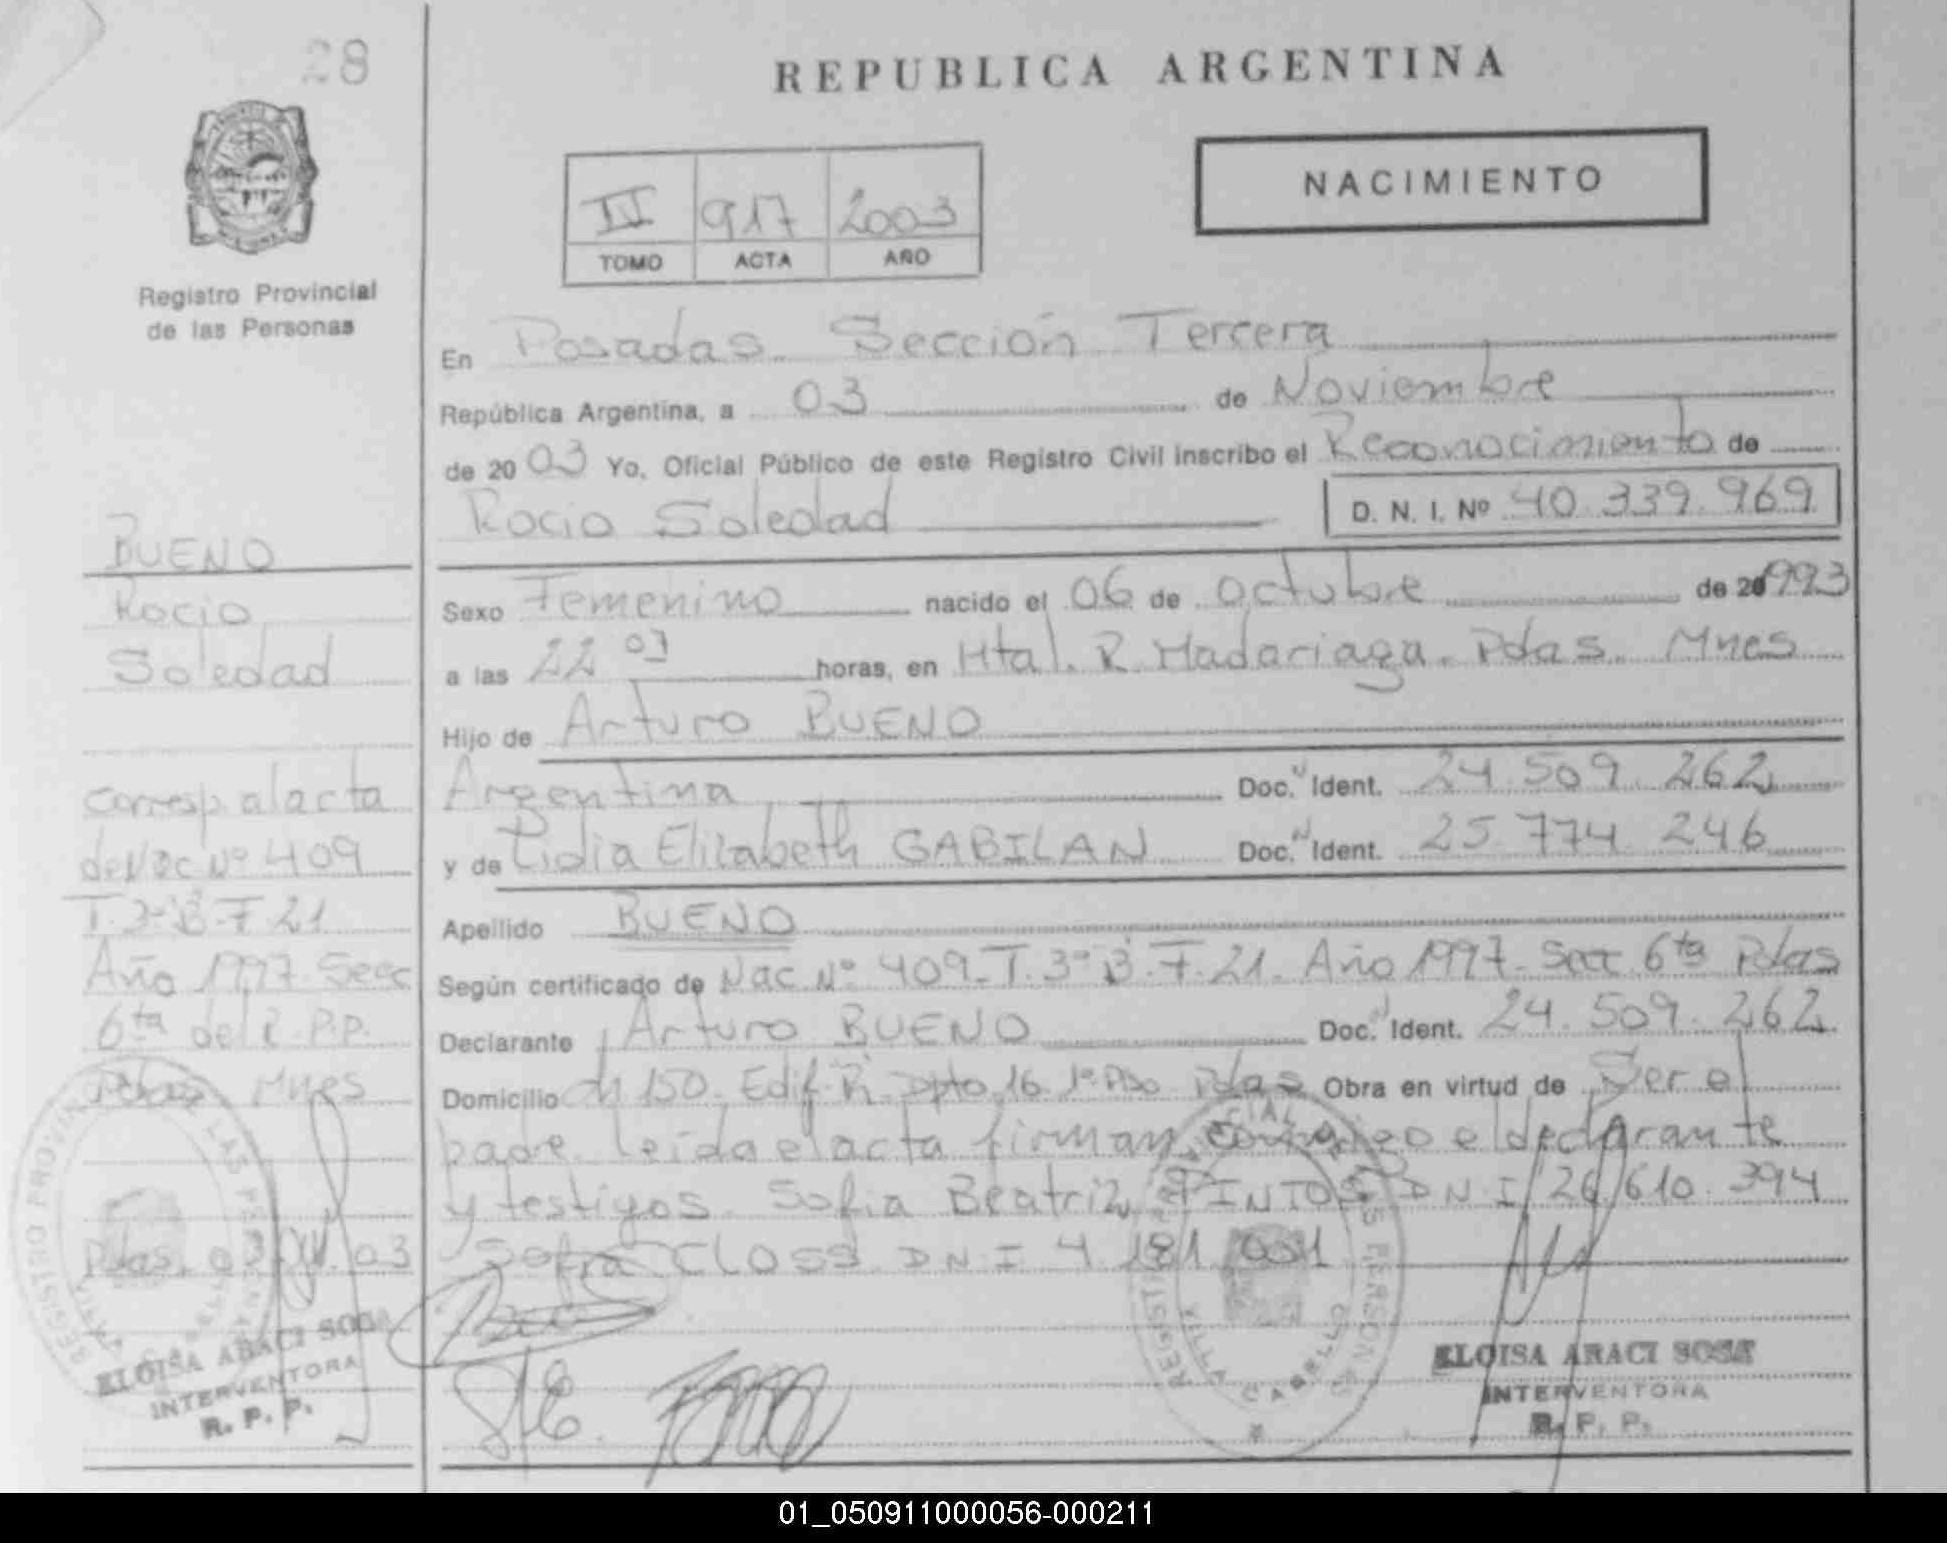 28
REPUBLICA ARGENTINA
NACIMIENTO
917 2003
TOMO ACTA AÑO
Registro Provincial
de las Personas
En Posadas. Sección Tercera
República Argentina, a 03 de Noviembre
de 2003 Yo, Oficial Público de este Registro Civil inscribo el Reconocimiento de
Rocio Soledad D. N. I. Nº 40.339.969
BUENO
Rocio
Soledad
Sexo Femenino nacido el 06 de octubre de 1993
a las 22 07 horas, en Htal. R. Madariaga. Pdas. Mnes
Hijo de Arturo BUENO
Argentina, Doc. Ident. 24.509.262
y de Lidia Elizabeth GABILAN Doc. Ident. 25.774.246
Apellido BUENO
Según certificado de Nac Nº 409-T.3º B.F.21. Año 1997- Secc 6ta Pdas
Declarante Arturo BUENO Doc. Ident. 24.509.262
Domicilio ch 150. Edif. Dpto 16 1º Piso Pdas Obra en virtud de Ser el
padre. Leída el acta firman conmigo el declarante
y testigos. Sofia Beatriz PINTOS DNI 26.610.394
CLOSS DNI 4.181.
corresp al acta
de Nac Nº 409
T. 3º B-F 21
Año 1997- Secc
6ta del R.P.P.
Pdas Mnes
Pdas, 03 03
REGISTRO PROVINCIAL DE LAS PERSONAS
VILLA CABELLO
ELOISA ARACI SOSA
INTERVENTORA
R. P. P.
ELOISA ARACI SOSA
INTERVENTORA
R. P. P.
01_050911000056-000211